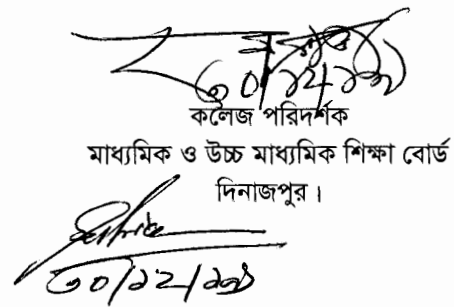 ৩০/১২/১৯
কলেজ পরিদর্শক
মাধ্যমিক ও উচ্চ মাধ্যমিক শিক্ষা বোর্ড
দিনাজপুর।
৩০/১২/১৯